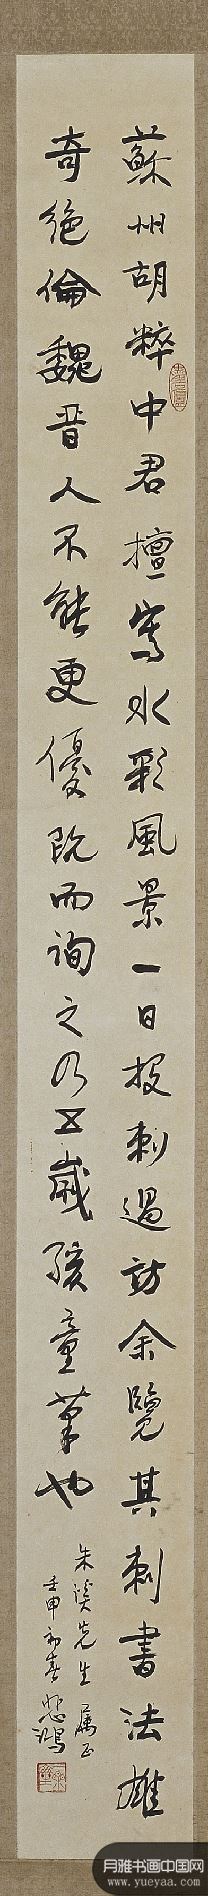 蘇州胡粹中君擅寫水彩風景一日投刺過訪余覽其刺書法雄
奇絕倫魏晉人不能更優既而詢之乃五歲孩童筆也
朱溪先生屬正
壬申初春悲鴻
月雅书画中国网
www.yueyaa.com